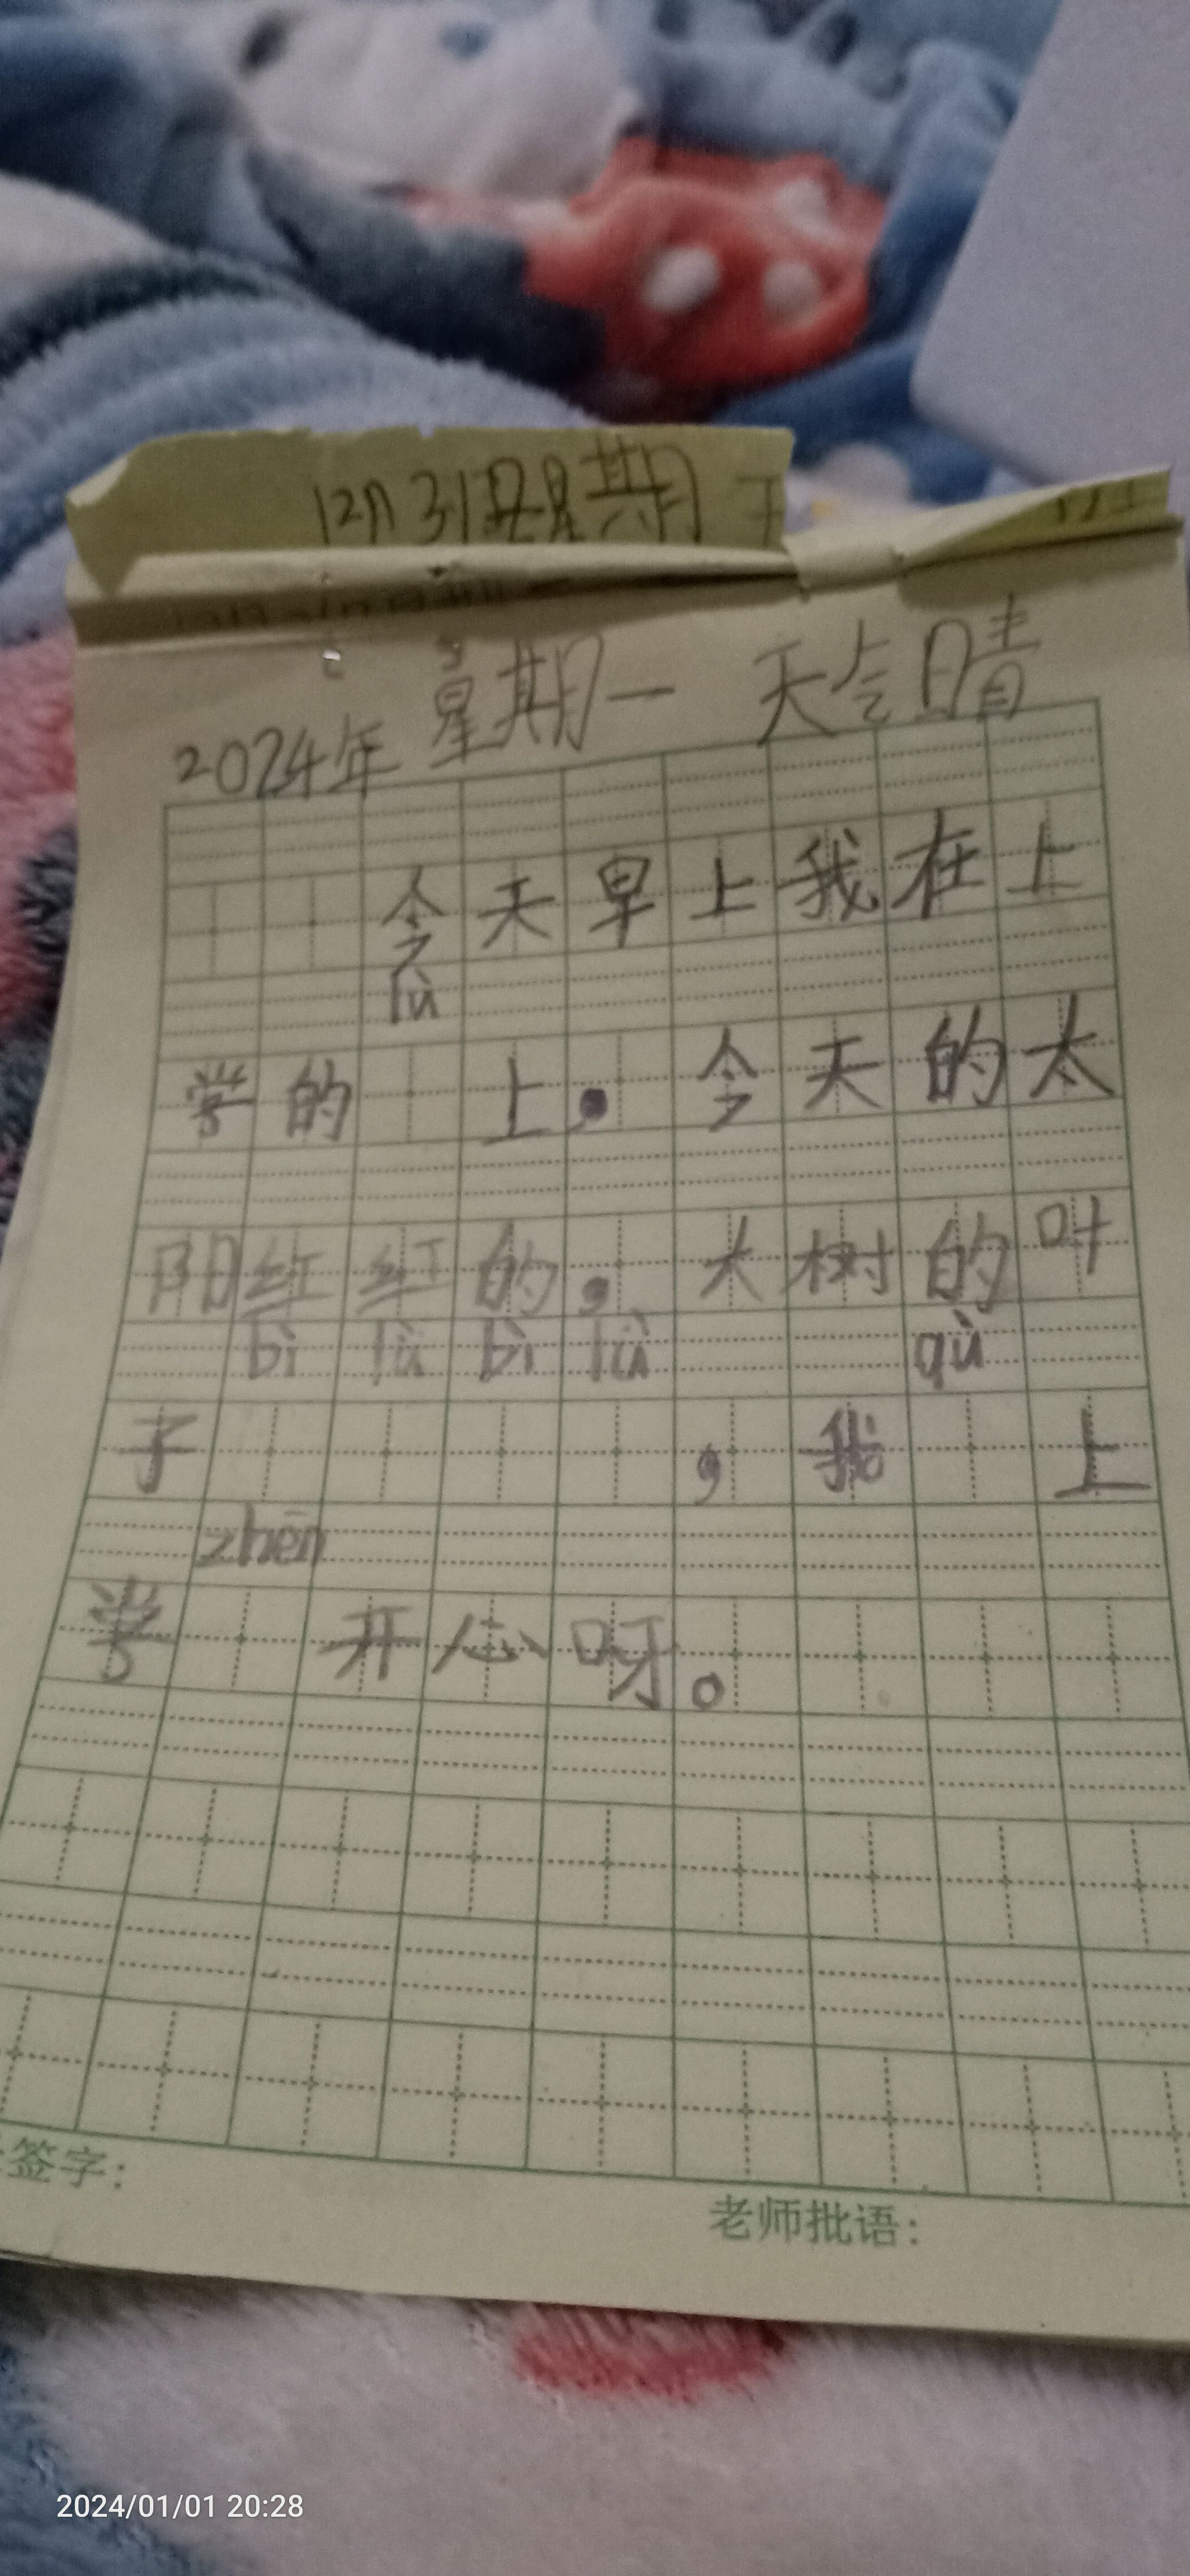 12月31日星期
2024年 星期一 天气晴
今天早上我在上
lù
学的 上，今天的太
阳红红的，大树的叶
bì lǜ bì lǜ qù
子 ，我 上
zhēn
学 开心呀。
签字：
老师批语：
2024/01/01 20:28